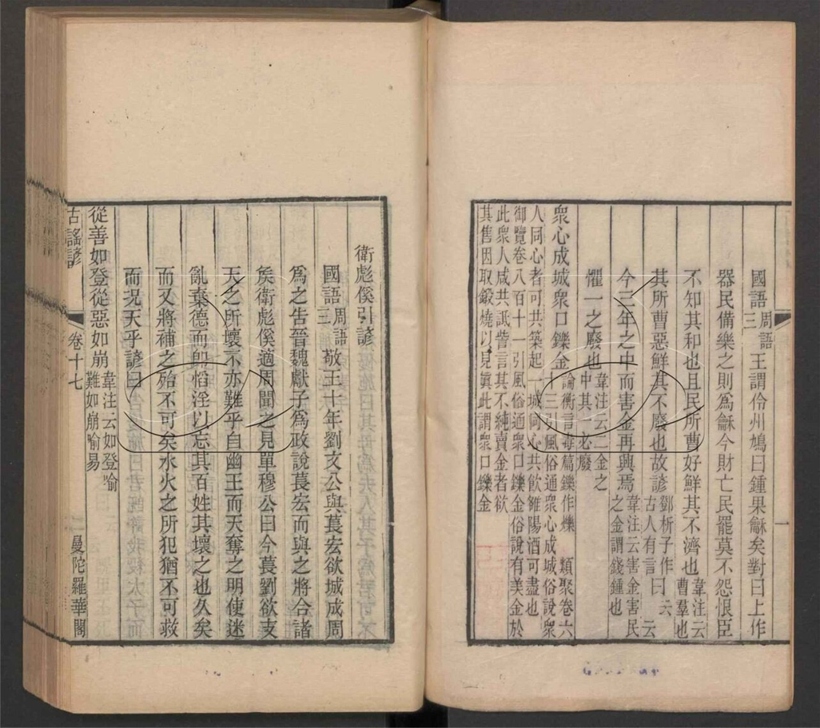 國語周語三王謂伶州鳩曰鍾果龢矣對曰上作
器民備樂之則為龢今財亡民罷莫不怨恨臣
不知其和也且民所曹好鮮其不濟也韋注云曹羣也
其所曹惡鮮其不廢也故諺鄧析子作古人有言曰云云
今三年之中而害金再興焉韋注云害金害民之金謂錢鍾也
懼一之廢也韋注云二金之中其一必廢
衆心成城衆口鑠金論衡言毒篇鑠作爍 類聚卷六三引風俗通衆心成城俗說衆
人同心者可共築起一城同心共飲雒陽酒可盡也
御覽卷八百十一引風俗通衆口鑠金俗說有美金於
此衆人咸共詆訾言其不純賣金者欲
其售因取鍛燒以見真此謂衆口鑠金
一
衛彪傒引諺
國語周語三敬王十年劉文公與萇宏欲城成周
為之告晉魏獻子為政說萇宏而與之將合諸
矦衛彪傒適周聞之見單穆公曰今萇劉欲支
天之所壞不亦難乎自幽王而天奪之明使迷
亂棄德而卽慆淫以忘其百姓其壞之也久矣
而又將補之殆不可矣水火之所犯猶不可救
而況天乎諺曰
從善如登從惡如崩韋注云如登喻難如崩喻易
古謠諺 卷十七 二 曼陀羅華閣